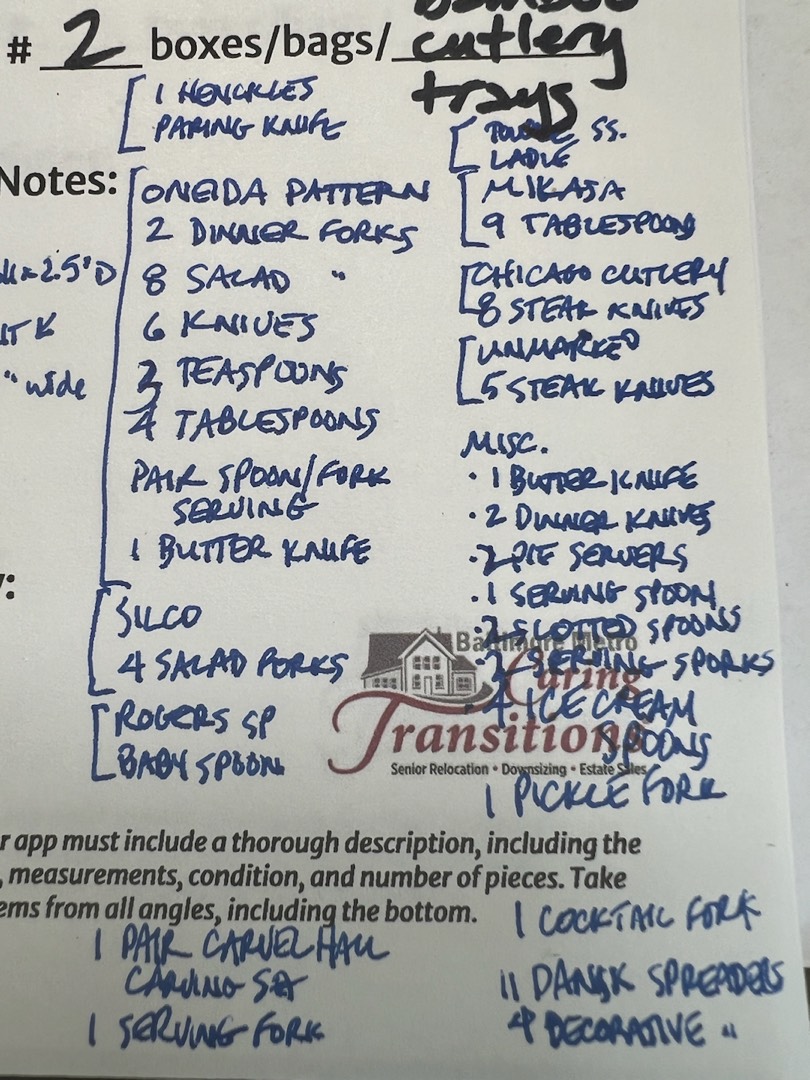 # 2 boxes/bags/ bamboo
cutlery
trays
[ 1 HENCKLES
PARING KNIFE
Notes:
ONEIDA PATTERN
2 DINNER FORKS
8 SALAD "
6 KNIVES
TEASPOONS
4 TABLESPOONS
PAIR SPOON/FORK
SERVING
1 BUTTER KNIFE
x 2.5" D
" wide
SILCO
4 SALAD FORKS
ROGERS SP
BABY SPOON
SS.
LADLE
MIKASA
9 TABLESPOON
CHICAGO CUTLERY
8 STEAK KNIVES
UNMARKED
5 STEAK KNIVES
MISC.
· 1 BUTTER KNIFE
· 2 DINNER KNIVES
· 2 PIE SERVERS
· 1 SERVING SPOON
· 2 SLOTTED SPOONS
· 2 SERVING SPORKS
· 4 ICE CREAM
SPOONS
1 PICKLE FORK
Baltimore Metro
Caring
Transitions
Senior Relocation • Downsizing • Estate Sales
r app must include a thorough description, including the
, measurements, condition, and number of pieces. Take
ems from all angles, including the bottom.
1 PAIR CARVEL HALL
CARVING SET
1 SERVING FORK
1 COCKTAIL FORK
11 DANSK SPREADERS
4 DECORATIVE "